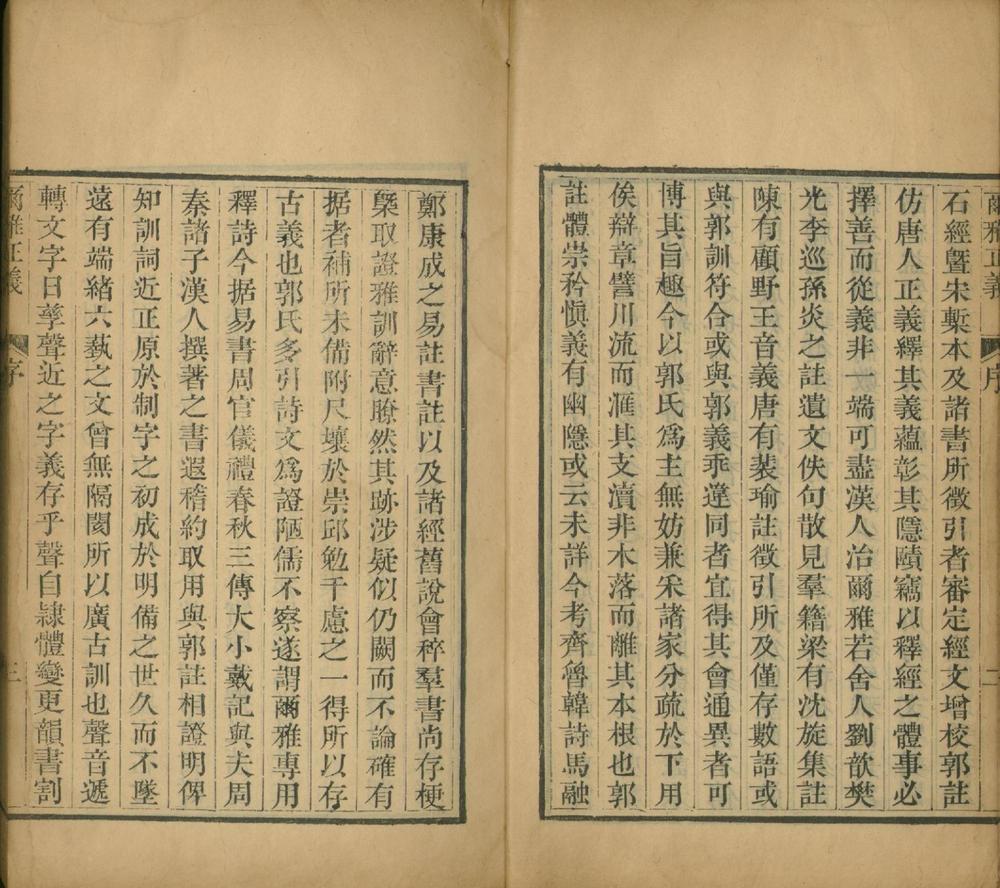 爾雅正義
序
二
石經曁宋槧本及諸書所徵引者審定經文增校郭註
仿唐人正義繹其義蘊彰其隱賾竊以釋經之體事必
擇善而從義非一端可盡漢人冶爾雅若舍人劉歆樊
光李巡孫炎之註遺文佚句散見羣籍梁有沈旋集註
陳有顧野王音義唐有裴瑜註徵引所及僅存數語或
與郭訓符合或與郭義乖違同者宜得其會通異者可
博其旨趣今以郭氏爲主無妨兼釆諸家分疏於下用
俟辯章譬川流而滙其支瀆非木落而離其本根也郭
註體崇矜愼義有幽隱或云未詳今考齊魯韓詩馬融
鄭康成之易註書註以及諸經舊說會稡羣書尚存梗
槩取證雅訓辭意瞭然其跡涉疑似仍闕而不論確有
据者補所未備附尺壤於崇邱勉千慮之一得所以存
古義也郭氏多引詩文爲證陋儒不察遂謂爾雅專用
釋詩今据易書周官儀禮春秋三傳大小戴記與夫周
秦諸子漢人撰著之書遐稽約取用與郭註相證明俾
知訓詞近正原於制字之初成於明備之世久而不墜
遠有端緒六埶之文曾無隔閡所以廣古訓也聲音遞
轉文字日孳聲近之字義存乎聲自隸體變更韻書割
爾雅正義
序
三